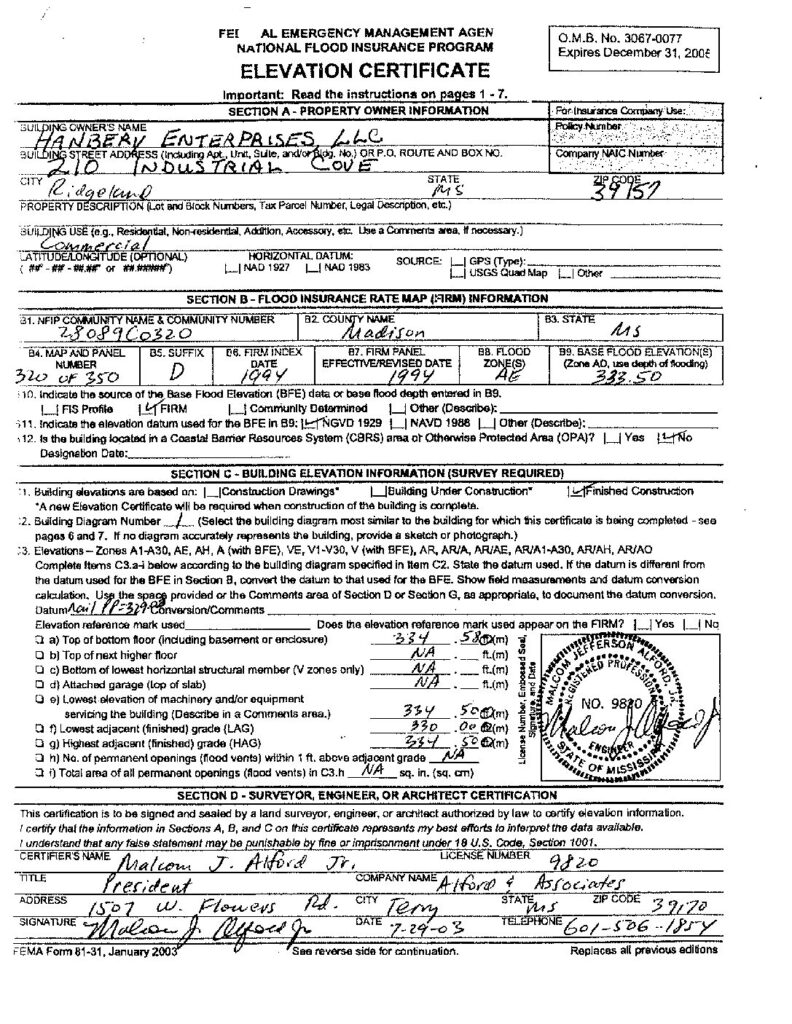 FEI AL EMERGENCY MANAGEMENT AGEN
NATIONAL FLOOD INSURANCE PROGRAM
ELEVATION CERTIFICATE
O.M.B. No. 3067-0077
Expires December 31, 2005
Important: Read the instructions on pages 1 - 7.
SECTION A - PROPERTY OWNER INFORMATION
For Insurance Company Use:
BUILDING OWNER'S NAME
HANBERY ENTERPRISES, LLC
Policy Number
BUILDING STREET ADDRESS (Including Apt., Unit, Suite, and/or Bldg. No.) OR P.O. ROUTE AND BOX NO.
210 INDUSTRIAL COVE
Company NAIC Number
CITY Ridgeland
STATE MS
ZIP CODE 39157
PROPERTY DESCRIPTION (Lot and Block Numbers, Tax Parcel Number, Legal Description, etc.)
BUILDING USE (e.g., Residential, Non-residential, Addition, Accessory, etc. Use a Comments area, if necessary.)
Commercial
LATITUDE/LONGITUDE (OPTIONAL)
( ##° - ##' - ##.##" or ##.#####°)
HORIZONTAL DATUM:
|_| NAD 1927 |_| NAD 1983
SOURCE: |_| GPS (Type):
|_| USGS Quad Map |_| Other
SECTION B - FLOOD INSURANCE RATE MAP (FIRM) INFORMATION
B1. NFIP COMMUNITY NAME & COMMUNITY NUMBER
28089C0320
B2. COUNTY NAME
Madison
B3. STATE
MS
B4. MAP AND PANEL NUMBER
320 OF 350
B5. SUFFIX
D
B6. FIRM INDEX DATE
1994
B7. FIRM PANEL EFFECTIVE/REVISED DATE
1994
B8. FLOOD ZONE(S)
AE
B9. BASE FLOOD ELEVATION(S)
(Zone AO, use depth of flooding)
333.50
10. Indicate the source of the Base Flood Elevation (BFE) data or base flood depth entered in B9.
|_| FIS Profile |✓| FIRM |_| Community Determined |_| Other (Describe):
11. Indicate the elevation datum used for the BFE in B9: |✓| NGVD 1929 |_| NAVD 1988 |_| Other (Describe):
12. Is the building located in a Coastal Barrier Resources System (CBRS) area or Otherwise Protected Area (OPA)? |_| Yes |✓| No
Designation Date:
SECTION C - BUILDING ELEVATION INFORMATION (SURVEY REQUIRED)
1. Building elevations are based on: |_| Construction Drawings* |_| Building Under Construction* |✓| Finished Construction
*A new Elevation Certificate will be required when construction of the building is complete.
2. Building Diagram Number 1 (Select the building diagram most similar to the building for which this certificate is being completed - see
pages 6 and 7. If no diagram accurately represents the building, provide a sketch or photograph.)
3. Elevations – Zones A1-A30, AE, AH, A (with BFE), VE, V1-V30, V (with BFE), AR, AR/A, AR/AE, AR/A1-A30, AR/AH, AR/AO
Complete Items C3.a-i below according to the building diagram specified in Item C2. State the datum used. If the datum is different from
the datum used for the BFE in Section B, convert the datum to that used for the BFE. Show field measurements and datum conversion
calculation. Use the space provided or the Comments area of Section D or Section G, as appropriate, to document the datum conversion.
Datum Nail PP=329 Conversion/Comments
Elevation reference mark used Does the elevation reference mark used appear on the FIRM? |_| Yes |_| No
a) Top of bottom floor (including basement or enclosure) 334 . 58 ft.(m)
b) Top of next higher floor NA . ft.(m)
c) Bottom of lowest horizontal structural member (V zones only) NA . ft.(m)
d) Attached garage (top of slab) NA . ft.(m)
e) Lowest elevation of machinery and/or equipment
servicing the building (Describe in a Comments area.) 334 . 50 ft.(m)
f) Lowest adjacent (finished) grade (LAG) 330 . 00 ft.(m)
g) Highest adjacent (finished) grade (HAG) 334 . 50 ft.(m)
h) No. of permanent openings (flood vents) within 1 ft. above adjacent grade NA
i) Total area of all permanent openings (flood vents) in C3.h NA sq. in. (sq. cm)
License Number, Embossed Seal,
Signature, and Date
MALCOM JEFFERSON ALFORD, JR.
REGISTERED PROFESSIONAL
NO. 9820
Malcom J Alford Jr
ENGINEER
STATE OF MISSISSIPPI
SECTION D - SURVEYOR, ENGINEER, OR ARCHITECT CERTIFICATION
This certification is to be signed and sealed by a land surveyor, engineer, or architect authorized by law to certify elevation information.
I certify that the information in Sections A, B, and C on this certificate represents my best efforts to interpret the data available.
I understand that any false statement may be punishable by fine or imprisonment under 18 U.S. Code, Section 1001.
CERTIFIER'S NAME Malcom J. Alford Jr.
LICENSE NUMBER 9820
TITLE President
COMPANY NAME Alford & Associates
ADDRESS 1507 W. Flowers Rd.
CITY Terry
STATE MS
ZIP CODE 39170
SIGNATURE Malcom J. Alford Jr
DATE 7-29-03
TELEPHONE 601-506-1854
FEMA Form 81-31, January 2003
See reverse side for continuation.
Replaces all previous editions